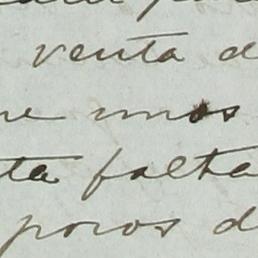 venta d
ne unos
ta falta
pocos d